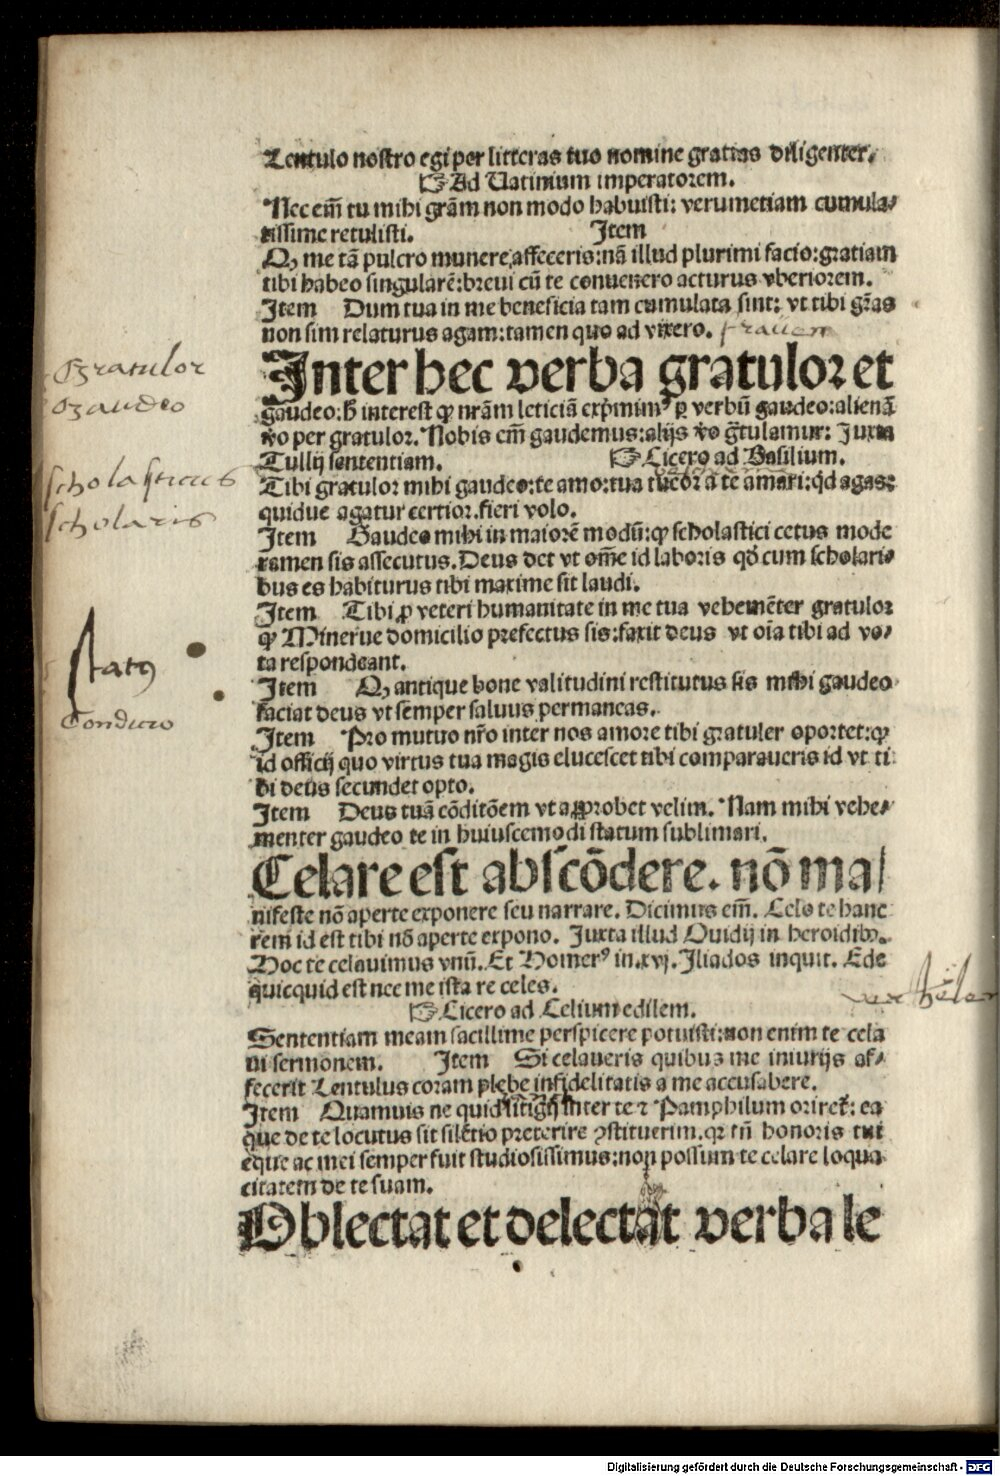 Lentulo nostro egi per litteras tuo nomine gratias diligenter.
☞Ad Uatinium imperatorem.
Nec em̄ tu mihi grām non modo habuisti: verumetiam cumula/
tissime retulisti. Item
Q, me tā pulcro munere affeceris: nā illud plurimi facio: gratiam
tibi habeo singularē: breui cū te conuenero acturus vberiorem.
Item Dum tua in me beneficia tam cumulata sint: vt tibi gr̄as
non sim relaturus agam: tamen quo ad vixero.
Inter hec verba gratulor et
gaudeo: h̄ interest ꝙ nrām leticiā exp̄mimꝰ ꝑ verbū gaudeo: alienā
v̄o per gratulor. Nobis em̄ gaudemus: alijs v̄o ḡtulamur: Juxta
Tullij sententiam. ☞Cicero ad Basilium.
Tibi gratulor mihi gaudeo: te amo: tua tueor a te amari: qd agas:
quidue agatur certior fieri volo.
Item Gaudeo mihi in maiorē modū: ꝙ scholastici cetus mode
ramen sis assecutus. Deus det vt om̄e id laboris qd̄ cum scholari/
bus es habiturus tibi maxime sit laudi.
Item Tibi ꝓ veteri humanitate in me tua vehemēter gratulor
ꝙ Minerue domicilio prefectus sis: faxit deus vt oīa tibi ad vo/
ta respondeant.
Item Q, antique bone valitudini restitutus sis mihi gaudeo
faciat deus vt semper saluus permaneas.
Item Pro mutuo nr̄o inter nos amore tibi gratuler oportet: ꝙ
id officij quo virtus tua magis elucescet tibi comparaueris id vt ti
bi deus secundet opto.
Item Deus tuā cōditōem vt approbet velim. Nam mihi vehe/
menter gaudeo te in huiuscemodi statum sublimari.
Celare est abscōdere. nō ma/
nifeste nō aperte exponere seu narrare. Dicimus em̄. Celo te hanc
rem id est tibi nō aperte expono. Juxta illud Ouidij in heroidibꝰ.
Hoc te celauimus vnū. Et Homerꝰ in .xvj. Iliados inquit. Ede
quicquid est nec me ista re celes.
☞Cicero ad Celium edilem.
Sententiam meam facillime perspicere potuisti: non enim te cela
ui sermonem. Item Si celaueris quibus me iniurijs af/
fecerit Lentulus coram plebe infidelitatis a me accusabere.
Item Quamuis ne quid litigij inter te ⁊ Pamphilum oriret̄: ea
que de te locutus sit silētio preterire ꝯstituerim. qꝛ tn̄ honoris tui
eque ac mei semper fuit studiosissimus: non possum te celare loqua
citatem de te suam.
Oblectat et delectat verba le
Gratulor
Gaudeo
scholasticus
scholaris
statꝰ
Conditio
Digitalisierung gefördert durch die Deutsche Forschungsgemeinschaft - DFG